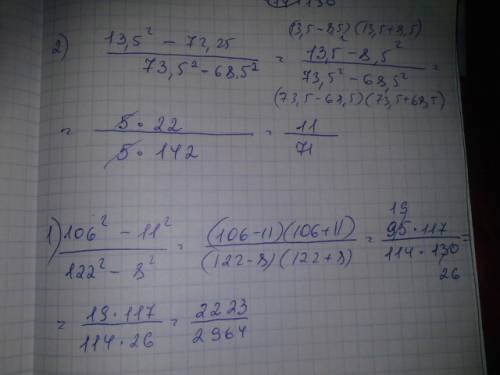 (13,5-8,5)(13,5+8,5)
2) 13,5² - 72,25 / 73,5² - 68,5² = 13,5 - 8,5² / 73,5² - 68,5² =
(73,5-68,5)(73,5+68,5)
= 5 · 22 / 5 · 142 = 11 / 71
1) 106² - 11² / 122² - 8² = (106-11)(106+11) / (122-8)(122+8) = 95 · 117 / 114 · 130 =
19
26
= 19 · 117 / 114 · 26 = 2223 / 2964